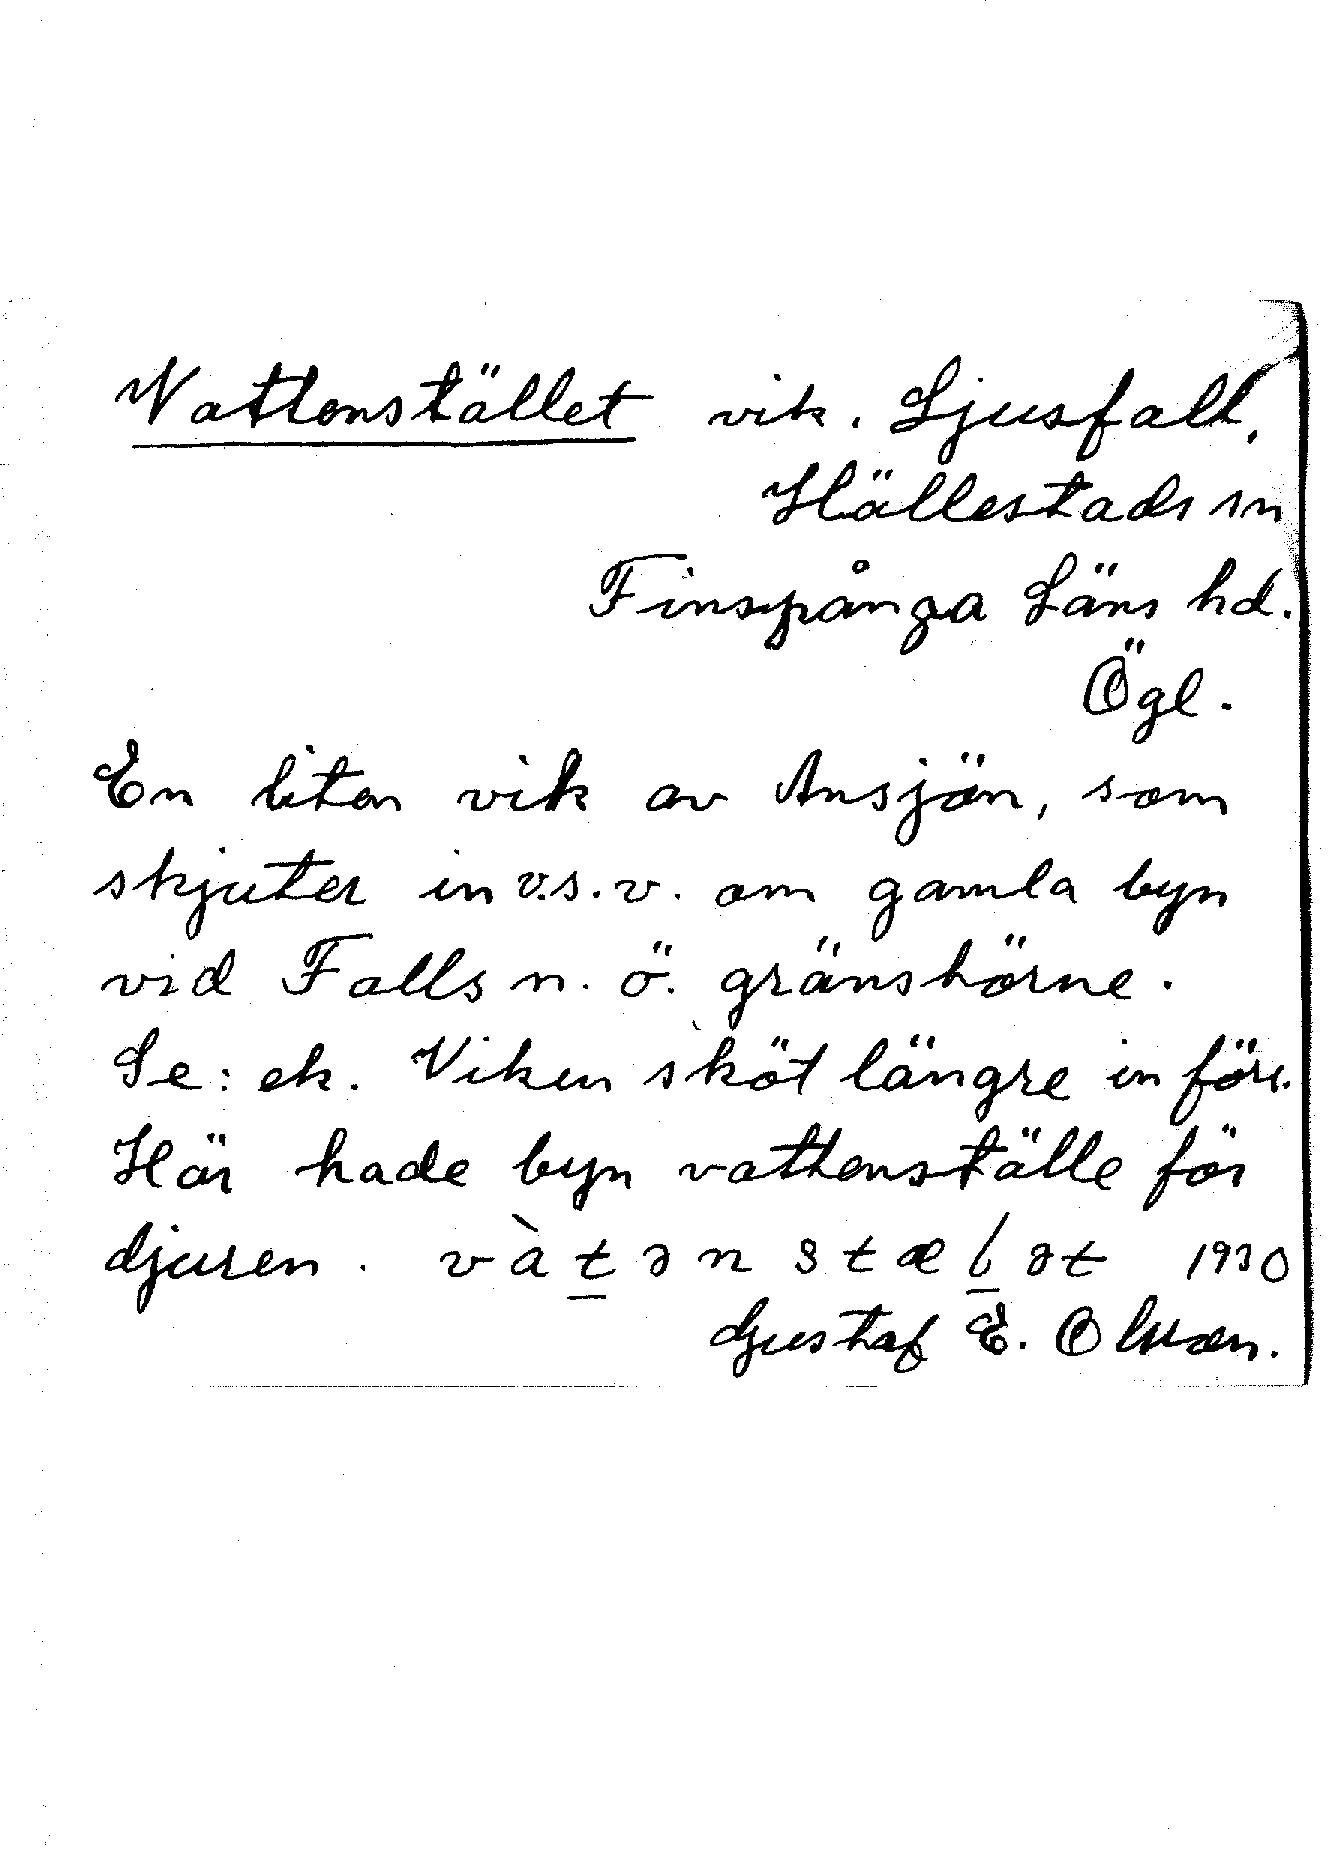 Vattenstället vik. Ljusfall,
Hällestads sn
Finspånga Läns hd.
Ögl.
En liten vik av Ansjön, som
skjuter in v.s.v. om gamla byn
vid Falls n.ö. gränshörne.
Se: ek. Viken sköt längre in förr.
Här hade byn vattenställe för
djuren. vàtən stælət 1930
Gustaf E. Olsson.